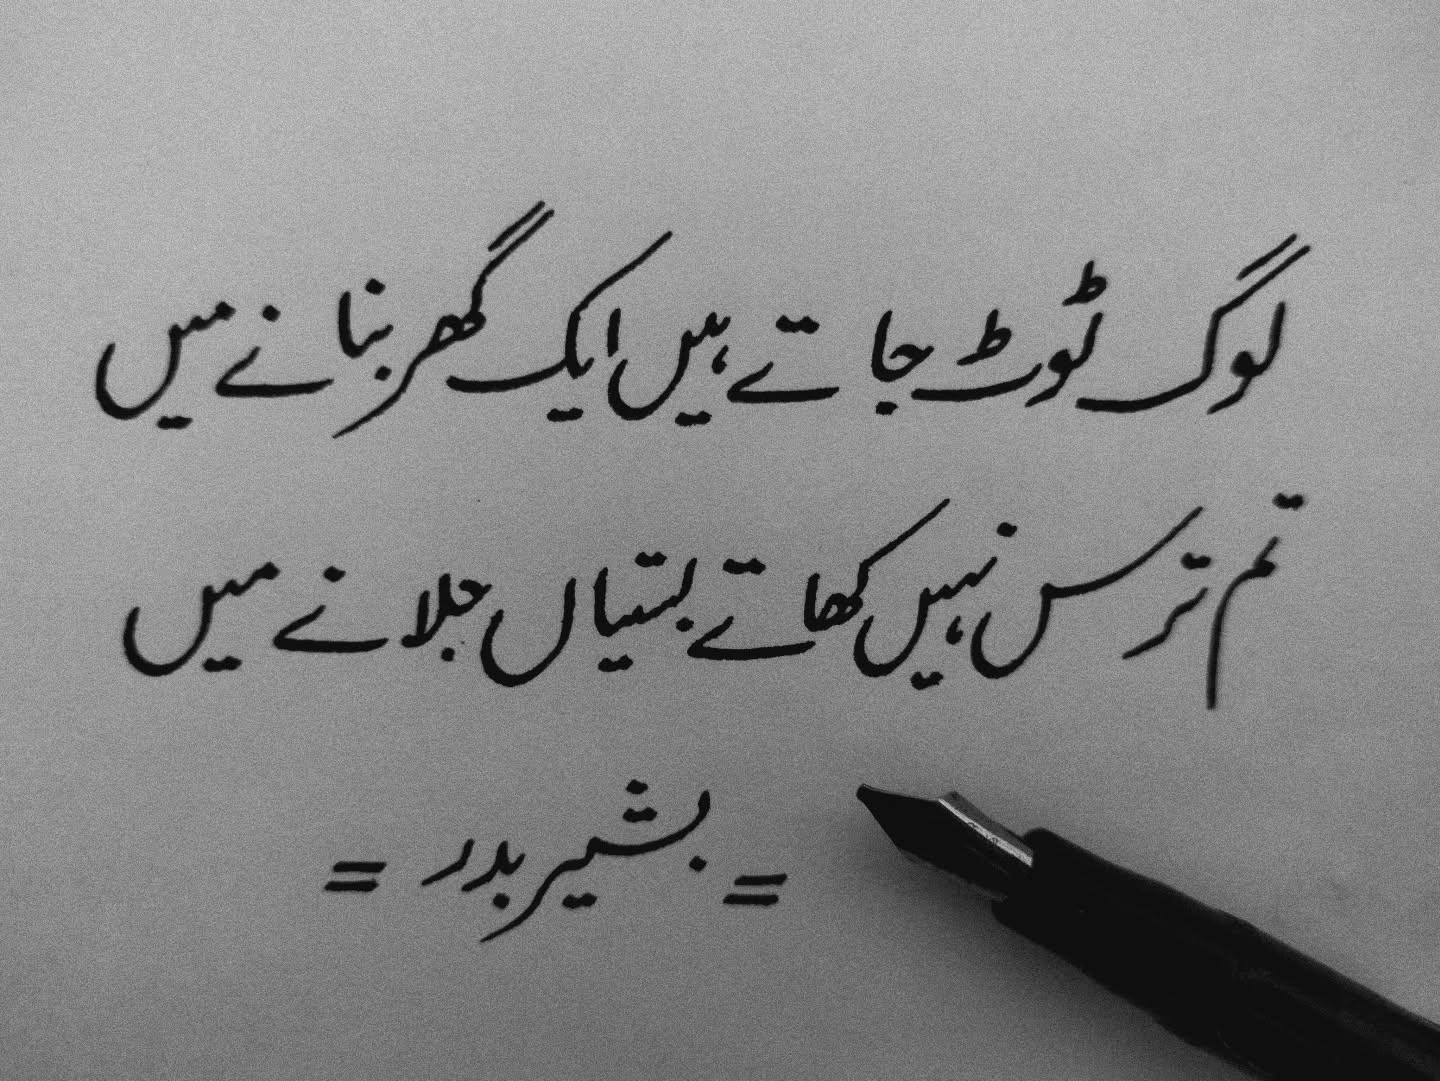 لوگ ٹوٹ جاتے ہیں ایک گھر بنانے میں
تم ترس نہیں کھاتے بستیاں جلانے میں
= بشیر بدر =